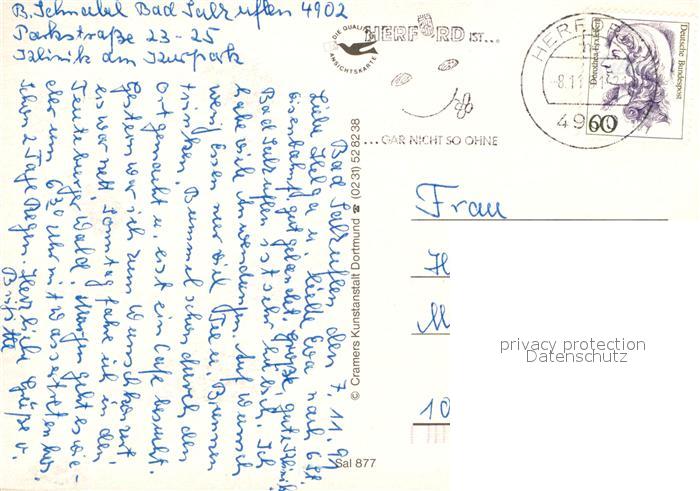 B. Schnabel Bad Salzuflen 4902
Parkstraße 23-25
Klinik am Kurpark
DIE QUALITÄTS
ANSICHTSKARTE
HERFORD IST...
...GAR NICHT SO OHNE
HERFORD
-8.11.
49
Dorothea Erxleben
Deutsche Bundespost
60
Bad Salzuflen, den 7.11.91
Liebe Helga u. liebe Eva nach 6 Std.
Eisenbahn gut gelandet. Große, gute Klinik
Bad Salzuflen ist sehr hübsch. Ich
habe viel Anwendungen. Auf Wunsch
wenig Essen nur viel Tee u. Brunnen
trinken. Bummel schon durch den
Ort gemacht u. erst ein Cafe besucht.
Gestern war ich zum Wunschkonzert
es war nett. Sonntag fahre ich in den
Teuteburger Wald. Morgen geht es wie-
der um 6.30 Uhr mit Wassertreten los.
Schon 2 Tage Regen. Herzliche Grüße v.
Brigitte
© Cramers Kunstanstalt Dortmund ☎ (0231) 528238
Sal 877
Frau
H
M
10
privacy protection
Datenschutz